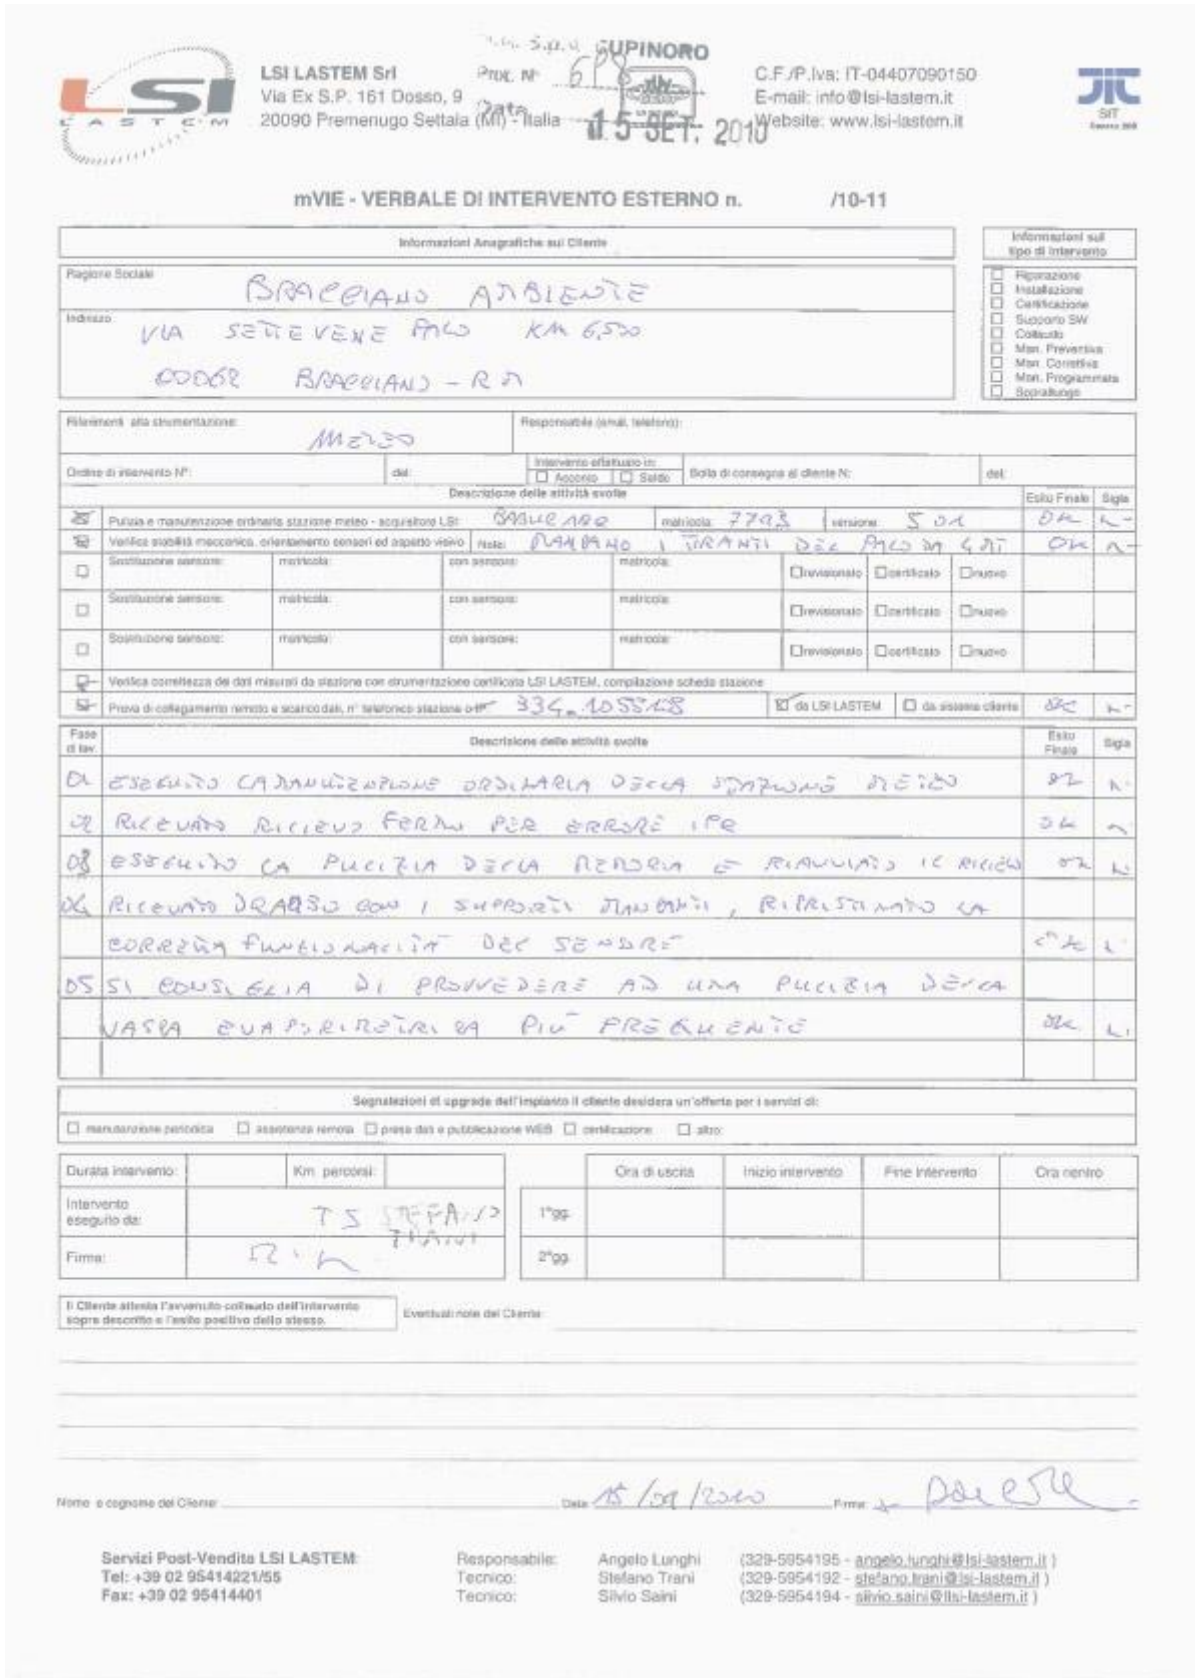 LSI LASTEM
LSI LASTEM Srl
Via Ex S.P. 161 Dosso, 9
20090 Premenugo Settala (MI) - Italia
S.p.A. CUPINORO
Prot. N°
Data
15 SET. 2010
C.F./P.Iva: IT-04407090150
E-mail: info@lsi-lastem.it
Website: www.lsi-lastem.it
SIT
mVIE - VERBALE DI INTERVENTO ESTERNO n. /10-11
Informazioni Anagrafiche sul Cliente
Informazioni sul
tipo di intervento
Ragione Sociale
BRACCIANO AMBIENTE
Indirizzo
VIA SETTEVENE PALO KM 6,500
00062 BRACCIANO - RM
Riparazione
Installazione
Certificazione
Supporto SW
Collaudo
Man. Preventiva
Man. Correttiva
Man. Programmata
Sopralluogo
Riferimenti alla strumentazione: METEO
Responsabile (email, telefono):
Ordine di intervento N°: del: Intervento effettuato in: Acconto Saldo Bolla di consegna al cliente N: del:
Descrizione delle attività svolte Esito Finale Sigla
Pulizia e manutenzione ordinaria stazione meteo - acquisitore LSI: matricola: 7793 versione: 5.01 OK
Verifica stabilità meccanica, orientamento sensori ed aspetto visivo Note: MANCANO I TIRANTI DEL PALO DA 4 MT OK
Sostituzione sensore: matricola: con sensore: matricola: revisionato certificato nuovo
Sostituzione sensore: matricola: con sensore: matricola: revisionato certificato nuovo
Sostituzione sensore: matricola: con sensore: matricola: revisionato certificato nuovo
Verifica correttezza dei dati misurati da stazione con strumentazione certificata LSI LASTEM, compilazione scheda stazione
Prova di collegamento remoto e scarico dati, n° telefonico stazione o IP da LSI LASTEM da sistema cliente OK
Fase di lav. Descrizione delle attività svolte Esito Finale Sigla
01 ESEGUITO LA MANUTENZIONE ORDINARIA DELLA STAZIONE METEO OK
02 RILEVATO RILIEVO FERMO PER ERRORE OK
03 ESEGUITO LA PULIZIA DELLA MEMORIA E RIAVVIATO IL RILIEVO OK
04 RILEVATO CON I SUPPORTI MANCANTI, RIPRISTINATO LA
CORRETTA FUNZIONALITÀ DEL SENSORE OK
05 SI CONSIGLIA DI PROVVEDERE AD UNA PULIZIA DELLA
VASCA EVAPORIMETRICA PIÙ FREQUENTE OK
Segnalazioni di upgrade dell'impianto il cliente desidera un'offerta per i servizi di:
manutenzione periodica assistenza remota presa dati e pubblicazione WEB certificazione altro:
Durata intervento: Km percorsi: Ora di uscita Inizio intervento Fine Intervento Ora rientro
Intervento
eseguito da: TS STEFANO
TRANI
1°gg.
Firma:
2°gg.
Il Cliente attesta l'avvenuto collaudo dell'intervento
sopra descritto e l'esito positivo dello stesso.
Eventuali note del Cliente:
Nome e cognome del Cliente: Data 15/09/2010 Firma
Servizi Post-Vendita LSI LASTEM: Responsabile: Angelo Lunghi (329-5954195 - angelo.lunghi@lsi-lastem.it )
Tel: +39 02 95414221/55 Tecnico: Stefano Trani (329-5954192 - stefano.trani@lsi-lastem.it )
Fax: +39 02 95414401 Tecnico: Silvio Saini (329-5954194 - silvio.saini@llsi-lastem.it )